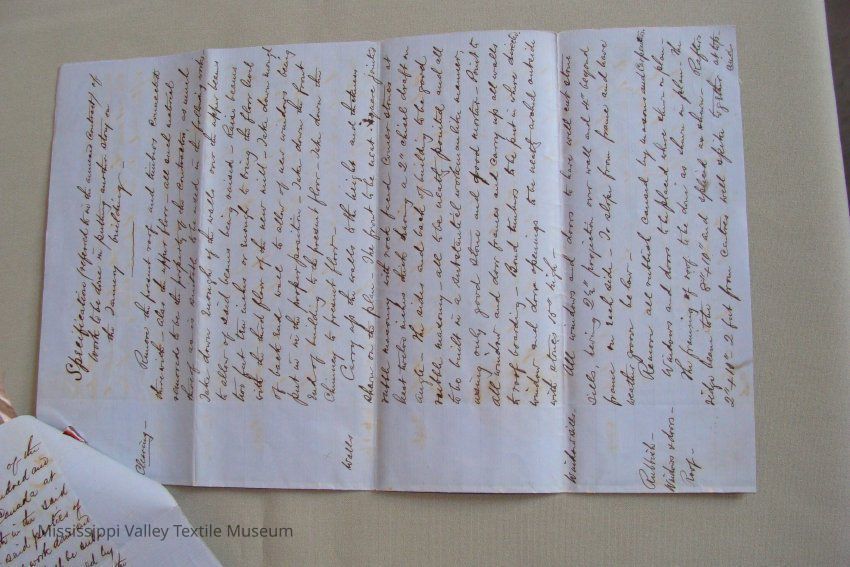 Specification referred to in the annexed contract, of
work to be done in putting another story on
the Tannery building.
Clearing - Remove the present roof and timbers connected
therewith - also the upper floor - all such material
removed to be the property of the Contractor, as much
thereof as is suitable to be used in the finishing work
Take down enough of the walls over the upper beams
to allow of said beams being raised - Raise beams
two feet ten inches or enough to bring the floor level
with the third floor of the new mill - Take down enough
of back end wall to allow of new windows being
put in in the proper position - Take down the front
end of building to the present floor - Take down the
Chimney to present floor -
Walls Carry up the walls to the heights and thickness
shewn on the plan. The front to be neat square jointed
rubble masonry with rock faced corner stones at
least twelve inches thick having a 2" chisel draft on
angle - The sides and back of building to be good
rubble masonry - all to be neatly pointed and all
to be built in a substantial workmanlike manner,
using only good stone and good mortar - Build
all window and door frames and carry up all walls
to roof boarding - Bond timbers to be put in where directed
window and door openings to be neatly arched outside
with stones 10" high -
Window Sills All windows and doors to have well cut stone
Sills, having 2½" projection over wall and 4" beyond
frame on each side - To slope from frame and have
weather groove below -
Rubbish - Remove all rubbish caused by masons and Carpenters
Windows & doors - Windows and doors to be placed where shewn on plan -
Roof - The framing of roof to be done as shewn on plan - The
ridge beam to be 8" x 10" and spliced as shewn Rafters
2" x 10" - 2 feet from centres well spiked together at top
and
of the
and
Canada at
in the said
said parties of
work
be
by
Mississippi Valley Textile Museum